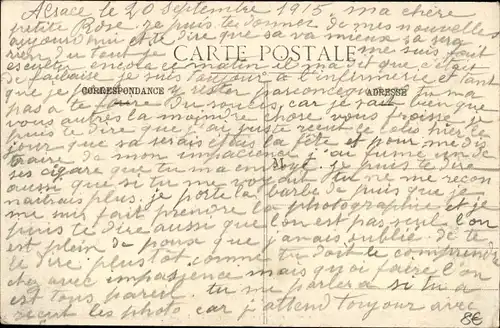 Alsace le 20 Septembre 1915 ma chère
petite Rose je puis te donner de mes nouvelles
aujourd'hui et te dire que sa va mieux sa ma
rien du tout je me suis fait
CARTE POSTALE
encore ce matin il ma dit que c'était
de faiblaise je suis toujour a l'infirmerie et tant
que je y rester parconcequent tu na
CORRESPONDANCE
ADRESSE
pas a te faire du soucis, car je sait bien que
vous autres la moindre chose vous froisse je
puis te dire que j'ai juste recut le colis hier le
jour que sa serais etais la fête et pour me dis
traire de mon impacience j'ai fumé un de
ses cigare que tu ma envoyé. je puis te dire
M
aussi que si tu me voyait tu ne me recon
naitrais plus, je porte la barbe de puis que je
me sui fait prendre la photographie et je
puis te dire aussi que l'on est pas seule l'on
est plein de poux que j'anais oublié de te
le dire plustôt comme tu doit le comprendre
chez avec impassience mais quoi faire l'on
est tous pareil. tu me parlera si tu a
recut les photo car j'attend toujour avec
8€